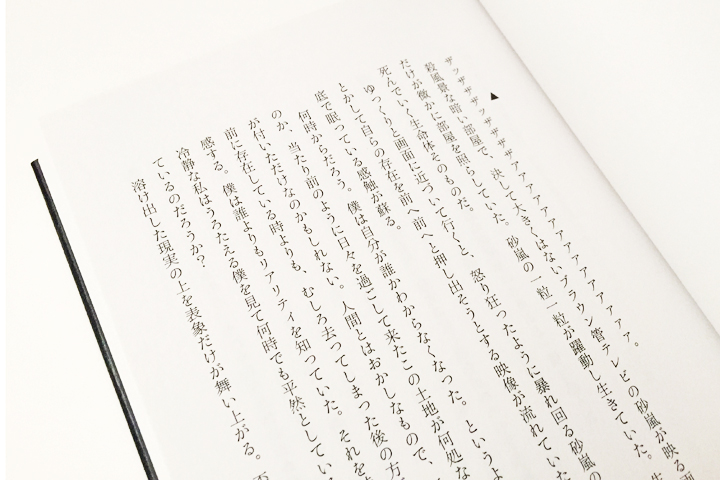 ▲
ザッザザザッザザザザァァァァァァァァァァァァァァ。
殺風景な暗い部屋で、決して大きくはないブラウン管テレビの砂嵐が映る画
だけが微かに部屋を照らしていた。砂嵐の一粒一粒が躍動し生きていた。生
死んでいく生命体そのものだ。
ゆっくりと画面に近づいて行くと、怒り狂ったように暴れ回る砂嵐の
とかして自らの存在を前へ前へと押し出そうとする映像が流れていた
底で眠っている感触が蘇る。
何時からだろう。僕は自分が誰かわからなくなった。というよ
のか、当たり前のように日々を過ごして来たこの土地が何処な
が付いただけなのかもしれない。人間とはおかしなもので、
前に存在している時よりも、むしろ去ってしまった後の方が
感する。僕は誰よりもリアリティを知っていた。それを
冷静な私はうろたえる僕を見て何時でも平然としてい
ているのだろうか?
溶け出した現実の上を表象だけが舞い上がる。